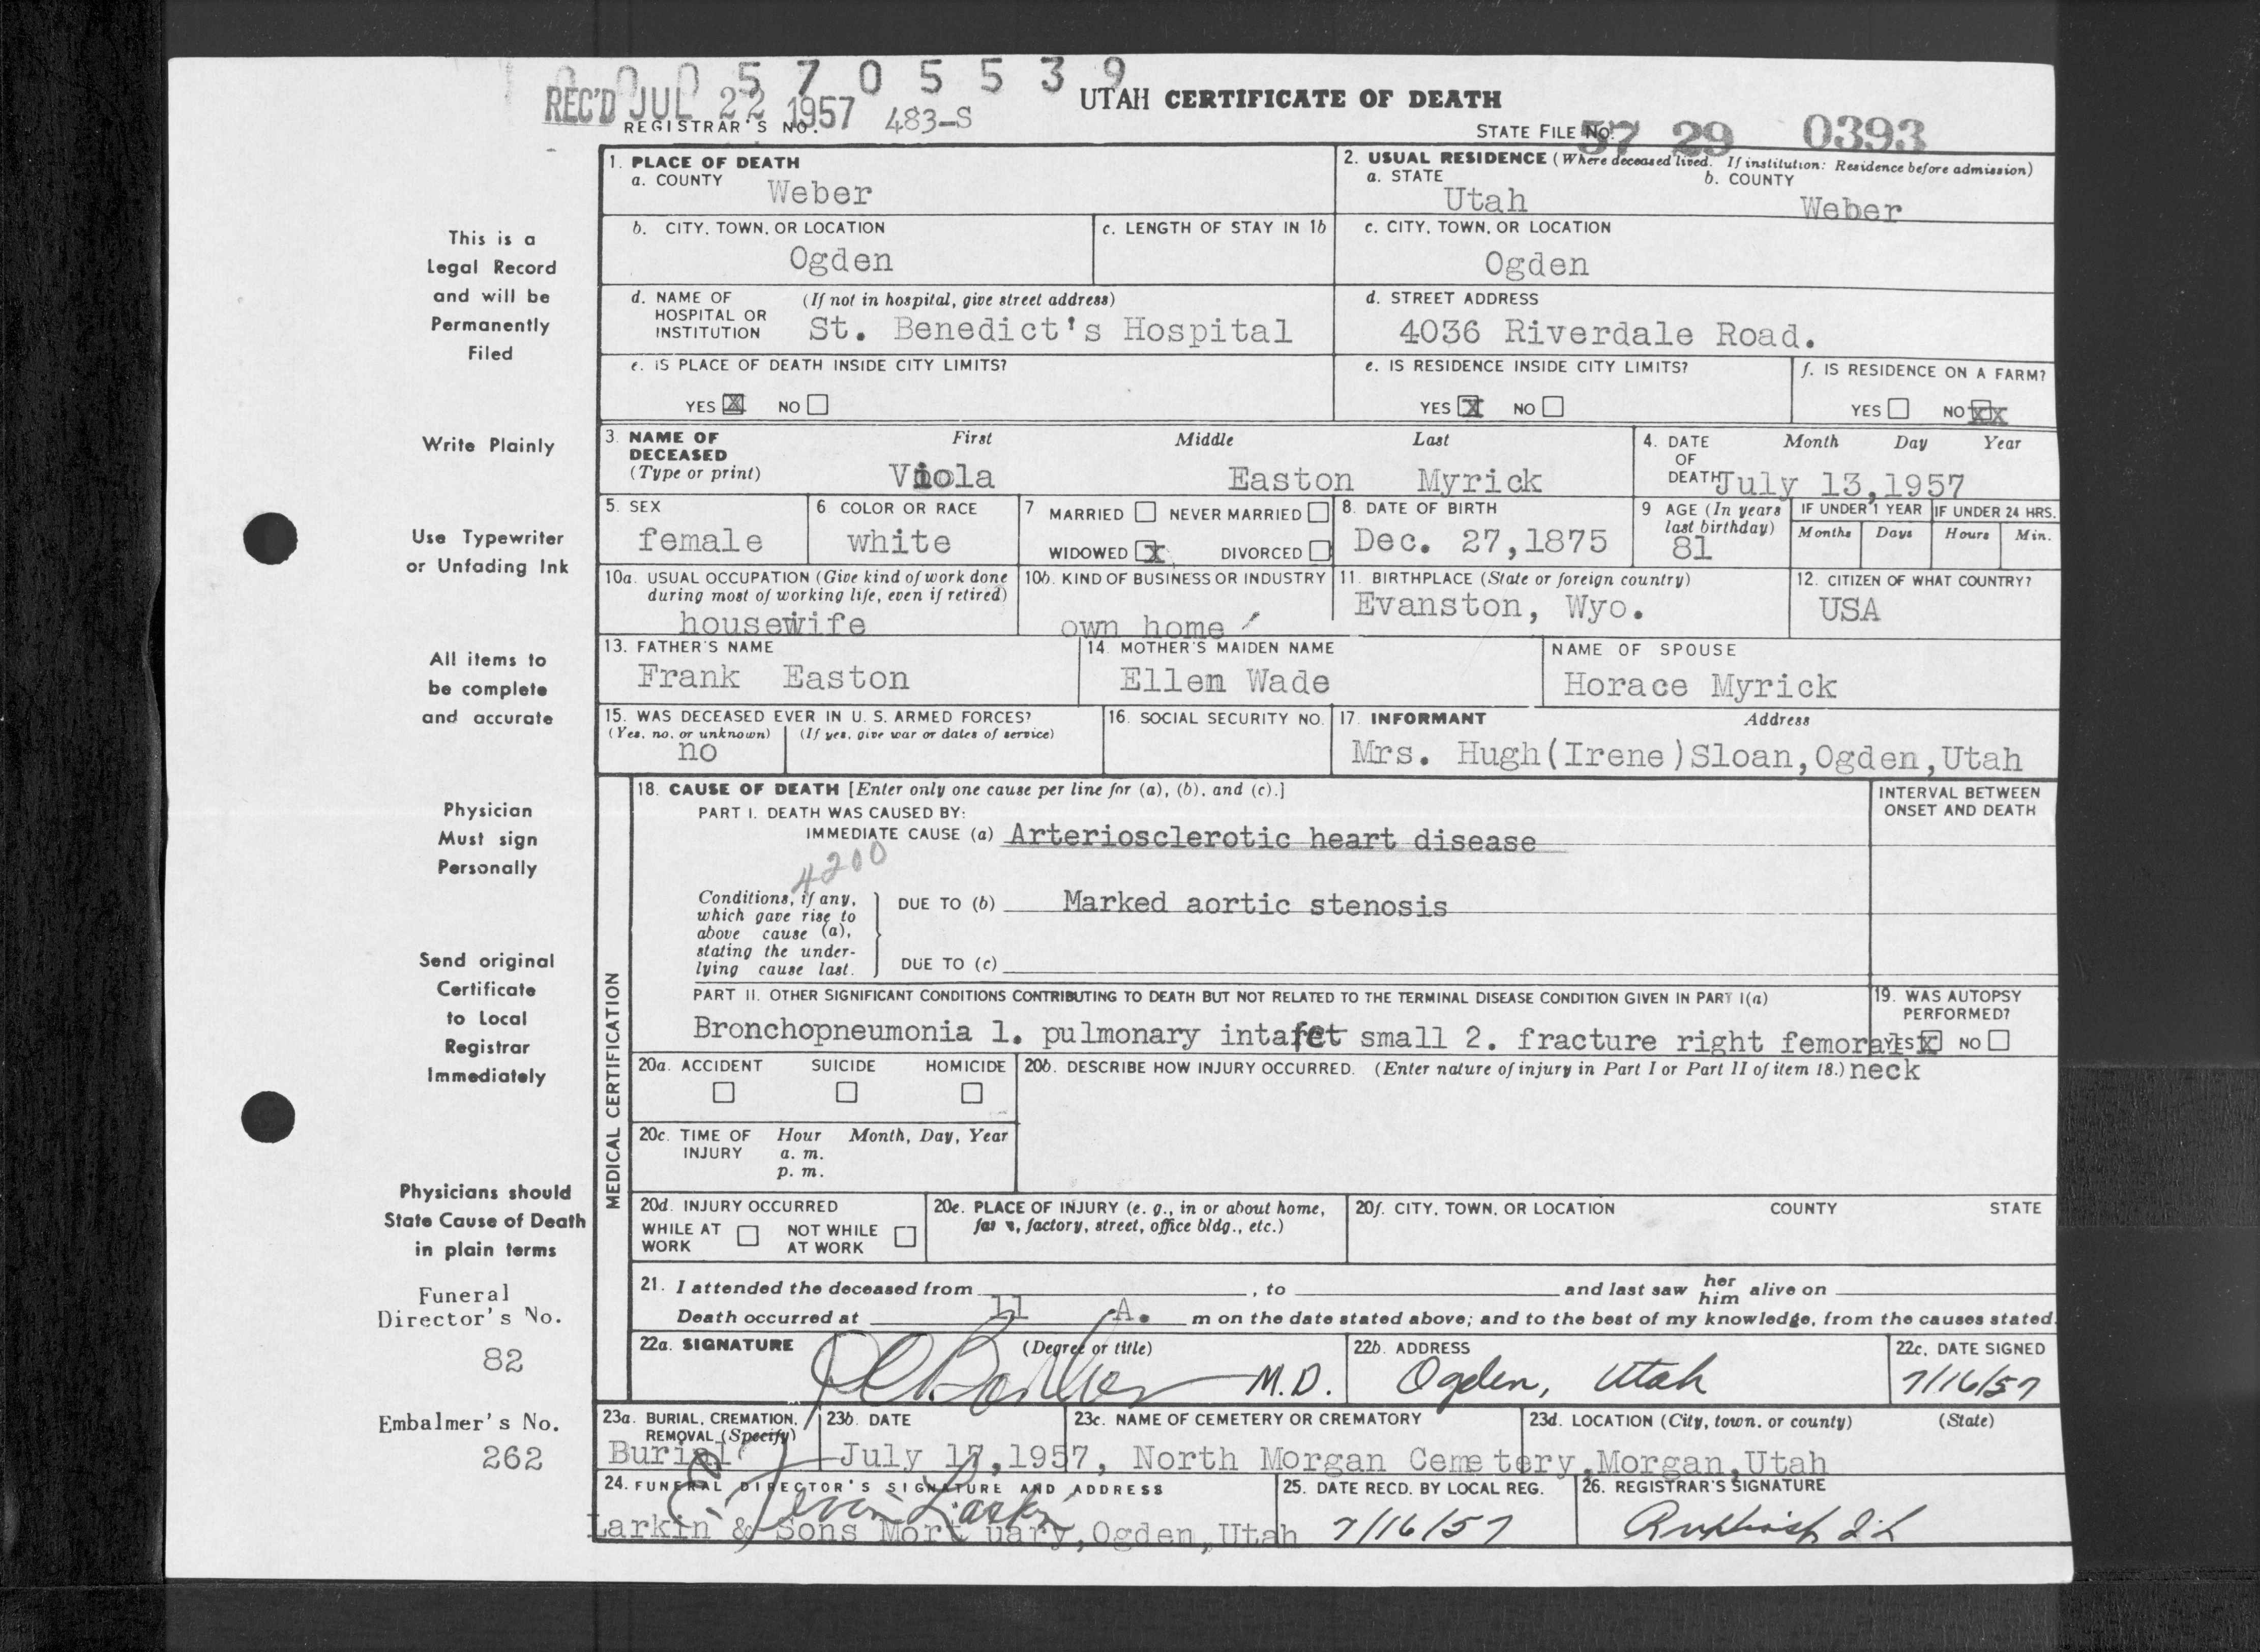 0 0 0 5 7 0 5 5 3 9
REC'D JUL 22 1957
REGISTRAR'S NO. 483-S
UTAH CERTIFICATE OF DEATH
STATE FILE NO. 57 29 0393
This is a
Legal Record
and will be
Permanently
Filed
Write Plainly
Use Typewriter
or Unfading Ink
All items to
be complete
and accurate
Physician
Must sign
Personally
Send original
Certificate
to Local
Registrar
Immediately
Physicians should
State Cause of Death
in plain terms
Funeral
Director's No.
82
Embalmer's No.
262
1. PLACE OF DEATH
a. COUNTY Weber
2. USUAL RESIDENCE (Where deceased lived. If institution: Residence before admission)
a. STATE Utah b. COUNTY Weber
b. CITY, TOWN, OR LOCATION Ogden
c. LENGTH OF STAY IN 1b
c. CITY, TOWN, OR LOCATION Ogden
d. NAME OF HOSPITAL OR INSTITUTION (If not in hospital, give street address) St. Benedict's Hospital
d. STREET ADDRESS 4036 Riverdale Road.
e. IS PLACE OF DEATH INSIDE CITY LIMITS?
YES X NO
e. IS RESIDENCE INSIDE CITY LIMITS?
YES X NO
f. IS RESIDENCE ON A FARM?
YES NO XX
3. NAME OF DECEASED (Type or print) First Middle Last
Viola Easton Myrick
4. DATE OF DEATH Month Day Year
July 13,1957
5. SEX female
6 COLOR OR RACE white
7 MARRIED NEVER MARRIED
WIDOWED X DIVORCED
8. DATE OF BIRTH Dec. 27,1875
9 AGE (In years last birthday) 81
IF UNDER 1 YEAR Months Days
IF UNDER 24 HRS. Hours Min.
10a. USUAL OCCUPATION (Give kind of work done during most of working life, even if retired) housewife
10b. KIND OF BUSINESS OR INDUSTRY own home
11. BIRTHPLACE (State or foreign country) Evanston, Wyo.
12. CITIZEN OF WHAT COUNTRY? USA
13. FATHER'S NAME Frank Easton
14. MOTHER'S MAIDEN NAME Ellen Wade
NAME OF SPOUSE Horace Myrick
15. WAS DECEASED EVER IN U. S. ARMED FORCES?
(Yes, no, or unknown) (If yes, give war or dates of service)
no
16. SOCIAL SECURITY NO.
17. INFORMANT Address
Mrs. Hugh(Irene)Sloan,Ogden,Utah
MEDICAL CERTIFICATION
18. CAUSE OF DEATH [Enter only one cause per line for (a), (b), and (c).]
INTERVAL BETWEEN ONSET AND DEATH
PART I. DEATH WAS CAUSED BY:
IMMEDIATE CAUSE (a) Arteriosclerotic heart disease
4200
Conditions, if any, which gave rise to above cause (a), stating the underlying cause last.
DUE TO (b) Marked aortic stenosis
DUE TO (c)
PART II. OTHER SIGNIFICANT CONDITIONS CONTRIBUTING TO DEATH BUT NOT RELATED TO THE TERMINAL DISEASE CONDITION GIVEN IN PART I(a)
Bronchopneumonia 1. pulmonary intafct small 2. fracture right femoral neck
19. WAS AUTOPSY PERFORMED?
YES X NO
20a. ACCIDENT SUICIDE HOMICIDE
20b. DESCRIBE HOW INJURY OCCURRED. (Enter nature of injury in Part I or Part II of item 18.)
20c. TIME OF INJURY Hour Month, Day, Year
a. m.
p. m.
20d. INJURY OCCURRED
WHILE AT WORK NOT WHILE AT WORK
20e. PLACE OF INJURY (e. g., in or about home, farm, factory, street, office bldg., etc.)
20f. CITY, TOWN, OR LOCATION COUNTY STATE
21. I attended the deceased from , to and last saw her him alive on
Death occurred at 11 A. m on the date stated above; and to the best of my knowledge, from the causes stated.
22a. SIGNATURE (Degree or title) M.D.
22b. ADDRESS Ogden, Utah
22c. DATE SIGNED 7/16/57
23a. BURIAL, CREMATION, REMOVAL (Specify) Burial
23b. DATE July 17,1957,
23c. NAME OF CEMETERY OR CREMATORY North Morgan Cemetery,
23d. LOCATION (City, town, or county) (State) Morgan,Utah
24. FUNERAL DIRECTOR'S SIGNATURE AND ADDRESS
Larkin
Larkin & Sons Mort uary,Ogden,Utah
25. DATE RECD. BY LOCAL REG. 7/16/57
26. REGISTRAR'S SIGNATURE